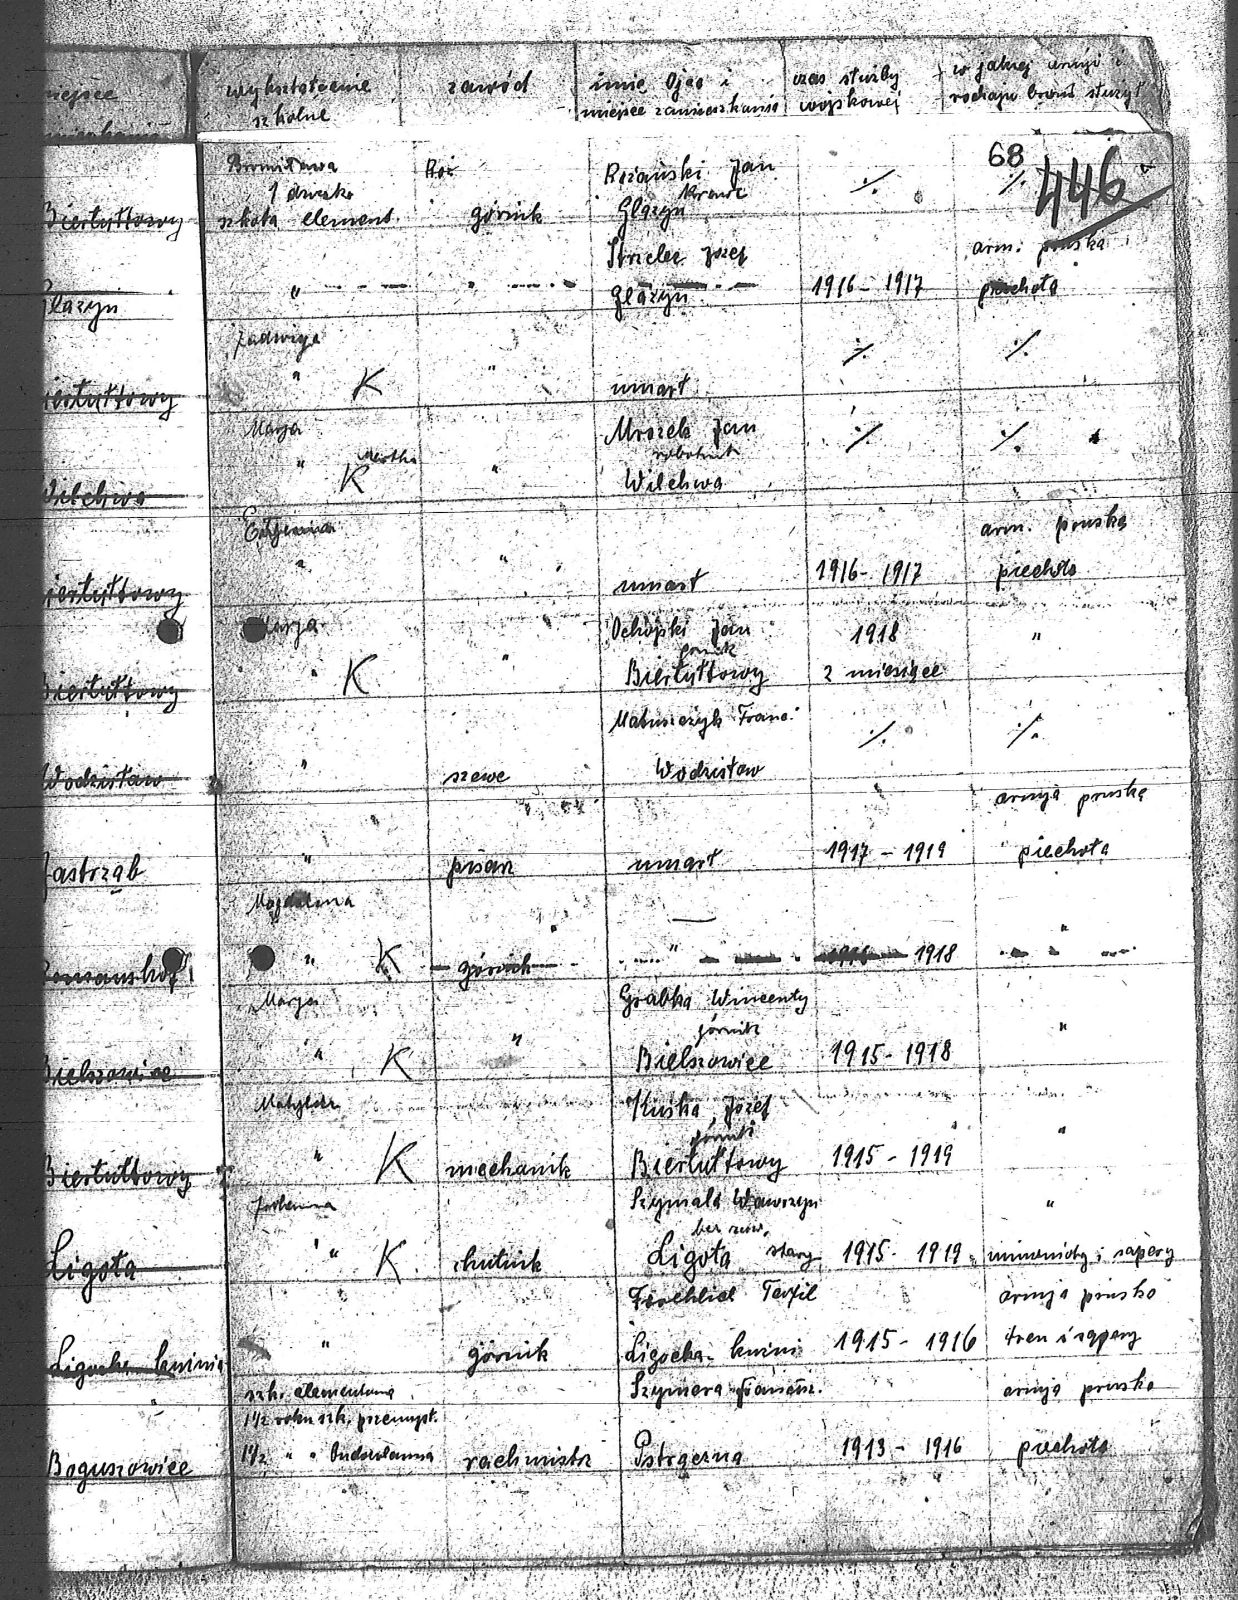 miejsce wykształcenie zawód imię Ojca i czas służby w jakiej armji i
szkolne miejsce zamieszkania wojskowej rodzaju broni służył
68
446
Bronisława Rożański Jan ./. ./.
1 dziecko krawc
Biertułtowy szkoła element. górnik Glazyn
Strzelec Józef arm. pruska
Glazyn " " Glazyn 1916 - 1917 piechota
Jadwiga ./. ./.
Biertułtowy " K " umarł
Marja Mrozek Jan ./. ./.
matka robotnik
Wilchwa " K " Wilchwa
arm. pruska
Biertułtowy " " umarł 1916 - 1917 piechota
Marja Jan 1918 "
górnik
Biertułtowy " K " Biertułtowy 2 miesiące
Matuszczyk Franc. ./. ./.
Wodzisław " szewc Wodzisław
armja pruska
Jastrząb " pisarz umarł 1917 - 1919 piechota
Magdalena — "
" K górnik " 1918
Marja Grabka Wincenty
górnik "
Bielszowice " K " Bielszowice 1915 - 1918
Matylda Kuśka Józef
górnik "
Biertułtowy " K mechanik Biertułtowy 1915 - 1919
Szymala Wawrzyn "
Ligota " K hutnik Ligota stary 1915 - 1919 i sapery
Teofil armja pruska
Ligocka kuźnia " górnik Ligocka kuźni 1915 - 1916 tren i sapery
" szk. elementarna Szymera armja pruska
1½ roku szk. przemysł.
Boguszowice 1½ " " budowlanna rachmistrz Pstrążna 1913 - 1916 piechota